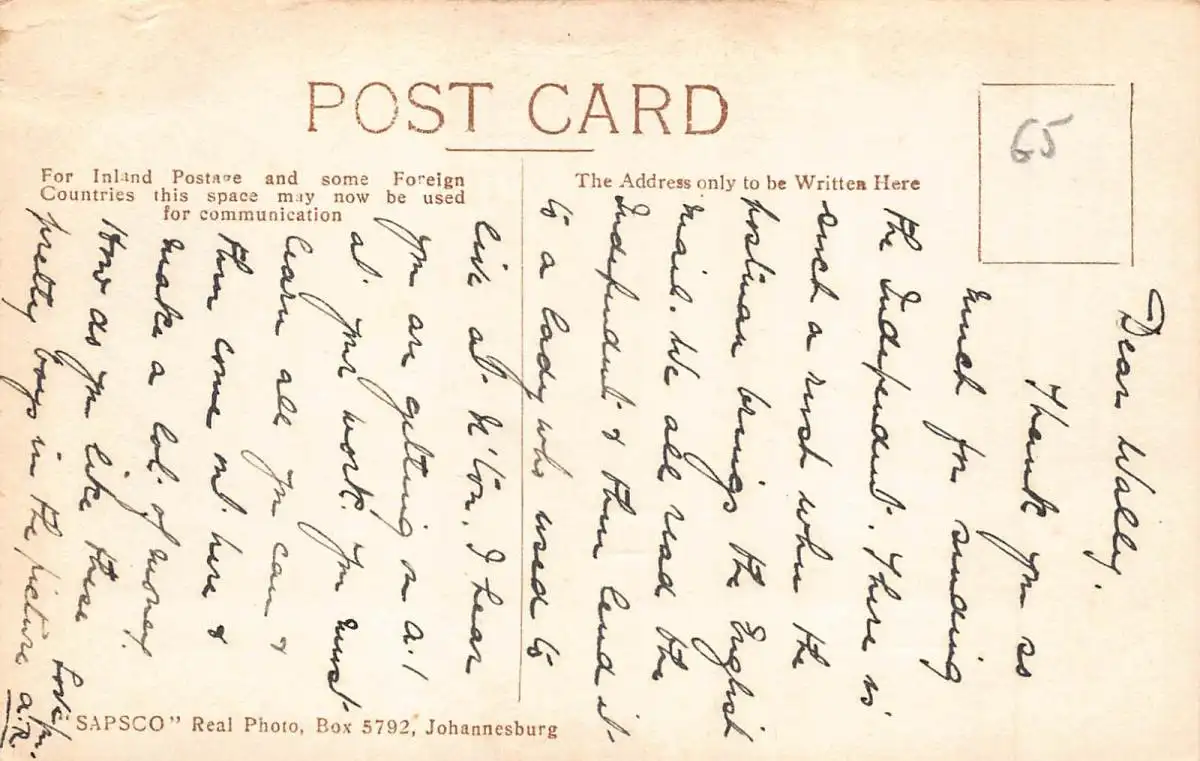 POST CARD
For Inland Postage and some Foreign
Countries this space may now be used
for communication
The Address only to be Written Here
65
Dear Wally.
Thank you as
much for sending
the Independent. There is
such a rush when the
postman brings the English
mail. We all read the
Independent & then lend it
to a lady who used to
live at N'ton. I hear
you are getting on a.1
at your work. You must
learn all you can &
then come out here &
make a lot of money.
How do you like these
pretty boys in the picture
a.R.
SAPSCO" Real Photo, Box 5792, Johannesburg